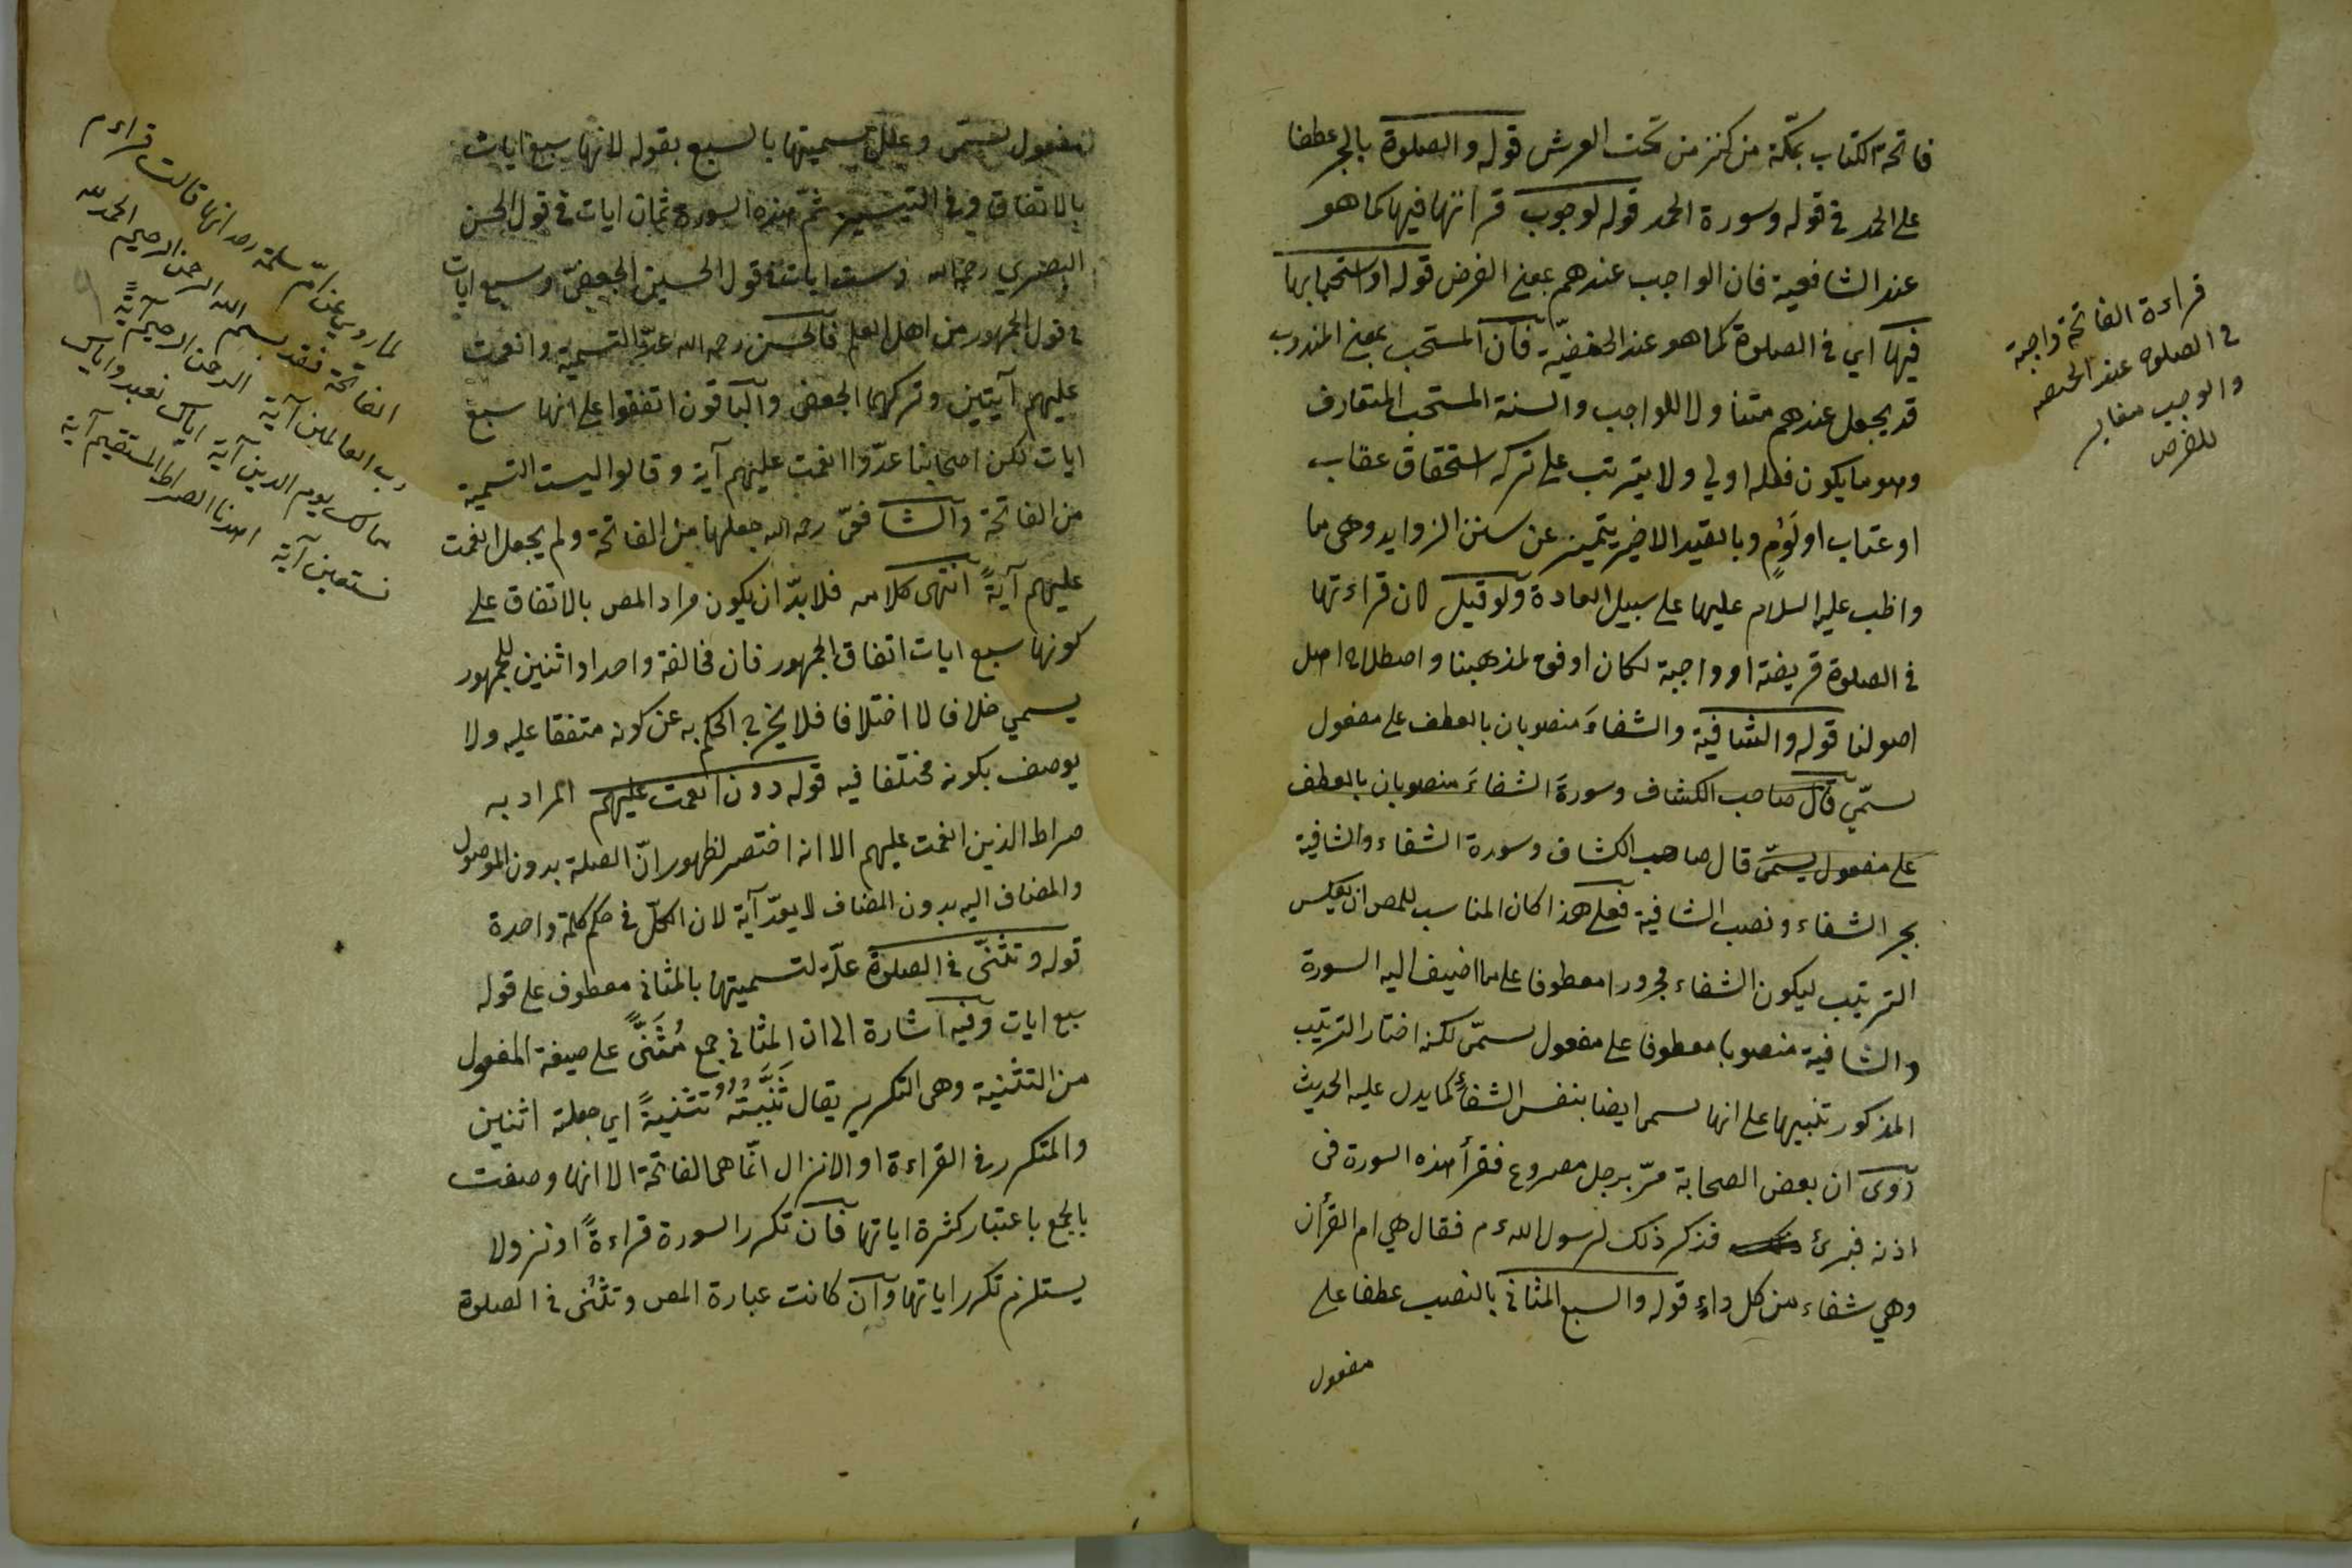 فاتحة الكتاب بمكّة من كنز من تحت العرش قوله والصلوة بالجر عطفا
على الحمد في قوله وسورة الحمد قوله لوجوب قرائتها فيها كما هو
عند الشافعية فان الواجب عندهم بمعنى الفرض قوله او استحبابها
فيها اي في الصلوة كما هو عند الحنفيّة فان المستحب بمعنى المندوب
قد يجعل عندهم متناولا للواجب والسنة المستحب المتعارف
وهو ما يكون فعله اولي ولا يترتب على تركه استحقاق عقاب
او عتاب او لَوْمٍ وبالقيد الاخير يتميز عن سنن الزوايد وهي ما
واظب عليه السلام عليها على سبيل العادة ولو قيل لان قراءتها
في الصلوة فريضة او واجبة لكان اوفق لمذهبنا واصطلاح اهل
اصولنا قوله والشافية والشفاءَ منصوبان بالعطف على مفعول
يسمّي قال صاحب الكشاف وسورة الشفاءَ منصوبان بالعطف
على مفعول يسمّى قال صاحب الكشاف وسورة الشفاء والشافية
بجر الشفاء ونصب الشافية فعلى هذا كان المناسب للمص ان يعكس
الترتيب ليكون الشفاء مجرورا معطوفا على ما اضيف اليه السورة
والشافية منصوبا معطوفا على مفعول يسمّى لكنه اختار الترتيب
المذكور تنبيها على انها يسمى ايضا بنفس الشفاءٍ كما يدل عليه الحديث
روى ان بعض الصحابة مرّ برجل مصروع فقرأ هذه السورة في
اذنه فبرئ فذكر ذلك لرسول الله ءم فقال هي ام القرأن
وهي شفاء من كل داءٍ قوله والسبع المثاني بالنصب عطفا على
مفعول
قراءة الفاتحة واجبة
في الصلوة عند الحنفيه
والوجب مغاير
للفرض
مفعول يسمّى وعلل تسميتها بالسبع بقوله لانها سبع ايات
بالاتفاق وفي التيسير ثمّ هذه السورة ثمان ايات في قول الحسن
البصري رحمه الله وست ايات في قول الحسين الجعفيّ وسبع ايات
في قول الجمهور من اهل العلم فالحسن رحمه الله عدّ التسمية وانعمت
عليهم آيتين وتركهما الجعفي والباقون اتفقوا على انها سبع
ايات لكن اصحابنا عدّوا انعمت عليهم آية وقالوا ليست التسمية
من الفاتحة والشافعيّ رحمه الله جعلها من الفاتحة ولم يجعل انعمت
عليهم آيةً انتهى كلامه فلا بدّ ان يكون مراد المص بالاتفاق على
كونها سبع ايات اتفاق الجمهور فان مخالفة واحد او اثنين للجمهور
يسمي خلافا لا اختلافا فلا يخرج الحكم به عن كونه متفقا عليه ولا
يوصف بكونه مختلفا فيه قوله دون انعمت عليهم المراد به
صراط الذين انعمت عليهم الا انه اختصر لظهور انّ الصلة بدون الموصول
والمضاف اليه بدون المضاف لا يعدّ آية لان الكلّ في حكم كلمة واحدة
قوله وتثنّى في الصلوة علّة لتسميتها بالمثاني معطوف على قوله
سبع ايات وفيه اشارة الى ان المثاني جمع مُثَنًّى على صيغة المفعول
من التثنية وهي التكرير يقال ثَنَّيْتُهُ تثنيةً اي جعلته اثنين
والمتكرر في القراءة او الانزال انّما هي الفاتحة الا انها وصفت
بالجمع باعتبار كثرة اياتها فان تكرر السورة قراءةً او نزولا
يستلزم تكرر اياتها وان كانت عبارة المص وتثنى في الصلوة
لما روي عن امّ سلمة رضـ انها قالت قراءم
الفاتحة فعد بسم الله الرحمن الرحيم الحمد لله
رب العالمين آية الرحمن الرحيم آيةً
مالك يوم الدين آية اياك نعبد واياك
نستعين آية اهدنا الصراط المستقيم آية
٩